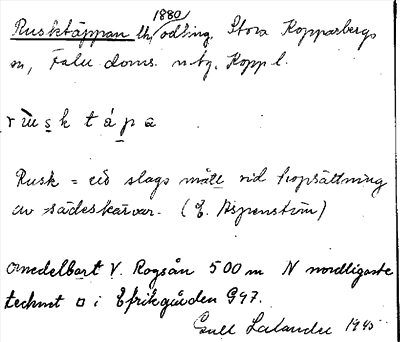 1880
Rusktäppan lh, odling, Stora Kopparbergs
sn, Falu doms. ntg, Kopp l.
r ù s k t á p a
Rusk = ett slags mått vid hopsättning
av sädeskärvar. (E. Aspenström)
omedelbart V. Rogsån 500 m N nordligaste
tecknet □ i Efrikgården G97.
Gull Lalander 1945